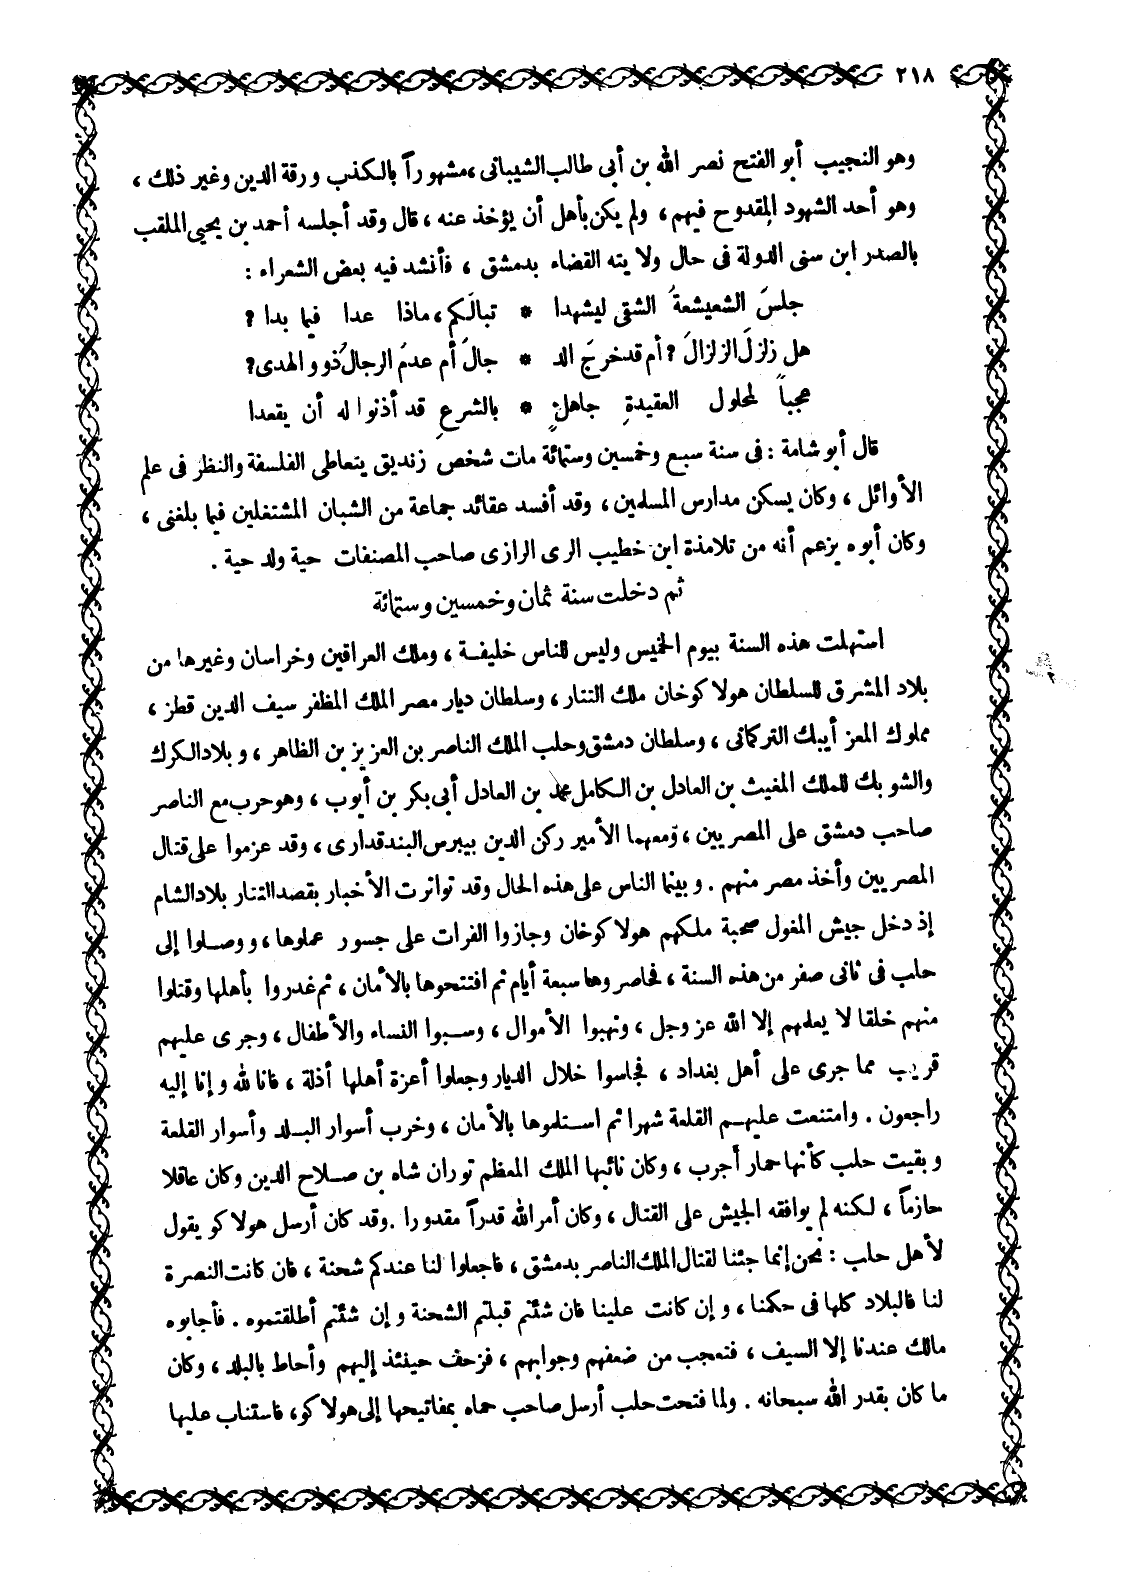 ٢١٨
وهو النجيب أبو الفتح نصر الله بن أبى طالب الشيبانى، مشهوراً بالكذب ورقة الدين وغير ذلك ،
وهو أحد الشهود المقدوح فيهم، ولم يكن بأهل أن يؤخذ عنه ، قال وقد أجلسه أحمد بن يحيى الملقب
بالصدر ابن سنى الدولة فى حال ولا يته القضاء بدمشق ، فأنشد فيه بعض الشعراء :
جلسَ الشعيشعةُ الشقى ليشهدا * تبالَكم، ماذا عدا فيما بدا ؟
هل زلزلَ الزلزالَ ؟ أم قد خرجَ الد * جالَ أم عدمَ الرجالُ ذو و الهدى؟
عجباً لمحلول العقيدةِ جاهلٍ * بالشرعِ قد أذنوا له أن يقعدا
قال أبو شامة : فى سنة سبع وخمسين وستمائة مات شخص زنديق يتعاطى الفلسفة والنظر فى علم
الأوائل ، وكان يسكن مدارس المسلمين، وقد أفسد عقائد جماعة من الشبان المشتغلين فيما بلغنى ،
وكان أبوه يزعم أنه من تلامذة ابن خطيب الرى الرازى صاحب المصنفات حية ولد حية .
ثم دخلت سنة ثمان وخمسين وستمائة
استهلت هذه السنة بيوم الخميس وليس للناس خليفة ، وملك العراقين وخراسان وغيرها من
بلاد المشرق للسلطان هولاكوخان ملك التتار ، وسلطان ديار مصر الملك المظفر سيف الدين قطز ،
مملوك المعز أيبك التركمانى ، وسلطان دمشق وحلب الملك الناصر بن العزيز بن الظاهر ، و بلاد الكرك
والشوبك للملك المغيث بن العادل بن الكامل محمد بن العادل أبى بكر بن أيوب ، وهو حرب مع الناصر
صاحب دمشق على المصريين ، ومعهما الأمير ركن الدين بيبرس البندقدارى ، وقد عزموا على قتال
المصريين وأخذ مصر منهم . وبينما الناس على هذه الحال وقد تواترت الأخبار بقصد التتار بلاد الشام
إذ دخل جيش المغول صحبة ملكهم هولاكوخان وجازوا الفرات على جسور عملوها ، ووصلوا إلى
حلب فى ثانى صفر من هذه السنة ، فحاصروها سبعة أيام ثم افتتحوها بالأمان ، ثم غدروا بأهلها وقتلوا
منهم خلقا لا يعلمهم إلا الله عز وجل ، ونهبوا الأموال ، وسبوا النساء والأطفال ، وجرى عليهم
قريب مما جرى على أهل بغداد ، فجاسوا خلال الديار وجعلوا أعزة أهلها أذلة ، فانا لله و إنا إليه
راجعون . وامتنعت عليهم القلعة شهرا ثم استلموها بالأمان ، وخرب أسوار البلد وأسوار القلعة
و بقيت حلب كأنها حمار أجرب ، وكان نائبها الملك المعظم توران شاه بن صلاح الدين وكان عاقلا
حازماً ، لكنه لم يوافقه الجيش على القتال ، وكان أمر الله قدراً مقدورا . وقد كان أرسل هولاكو يقول
لأهل حلب : نحن إنما جئنا لقتال الملك الناصر بدمشق ، فاجعلوا لنا عندكم شحنة ، فان كانت النصرة
لنا فالبلاد كلها فى حكمنا ، و إن كانت علينا فان شئتم قبلتم الشحنة و إن شئتم أطلقتموه . فأجابوه
مالك عندنا إلا السيف ، فتعجب من ضعفهم وجوابهم ، فزحف حينئذ إليهم وأحاط بالبلد ، وكان
ما كان بقدر الله سبحانه . ولما فتحت حلب أرسل صاحب حماه بمفاتيحها إلى هولاكو، فاستناب عليها